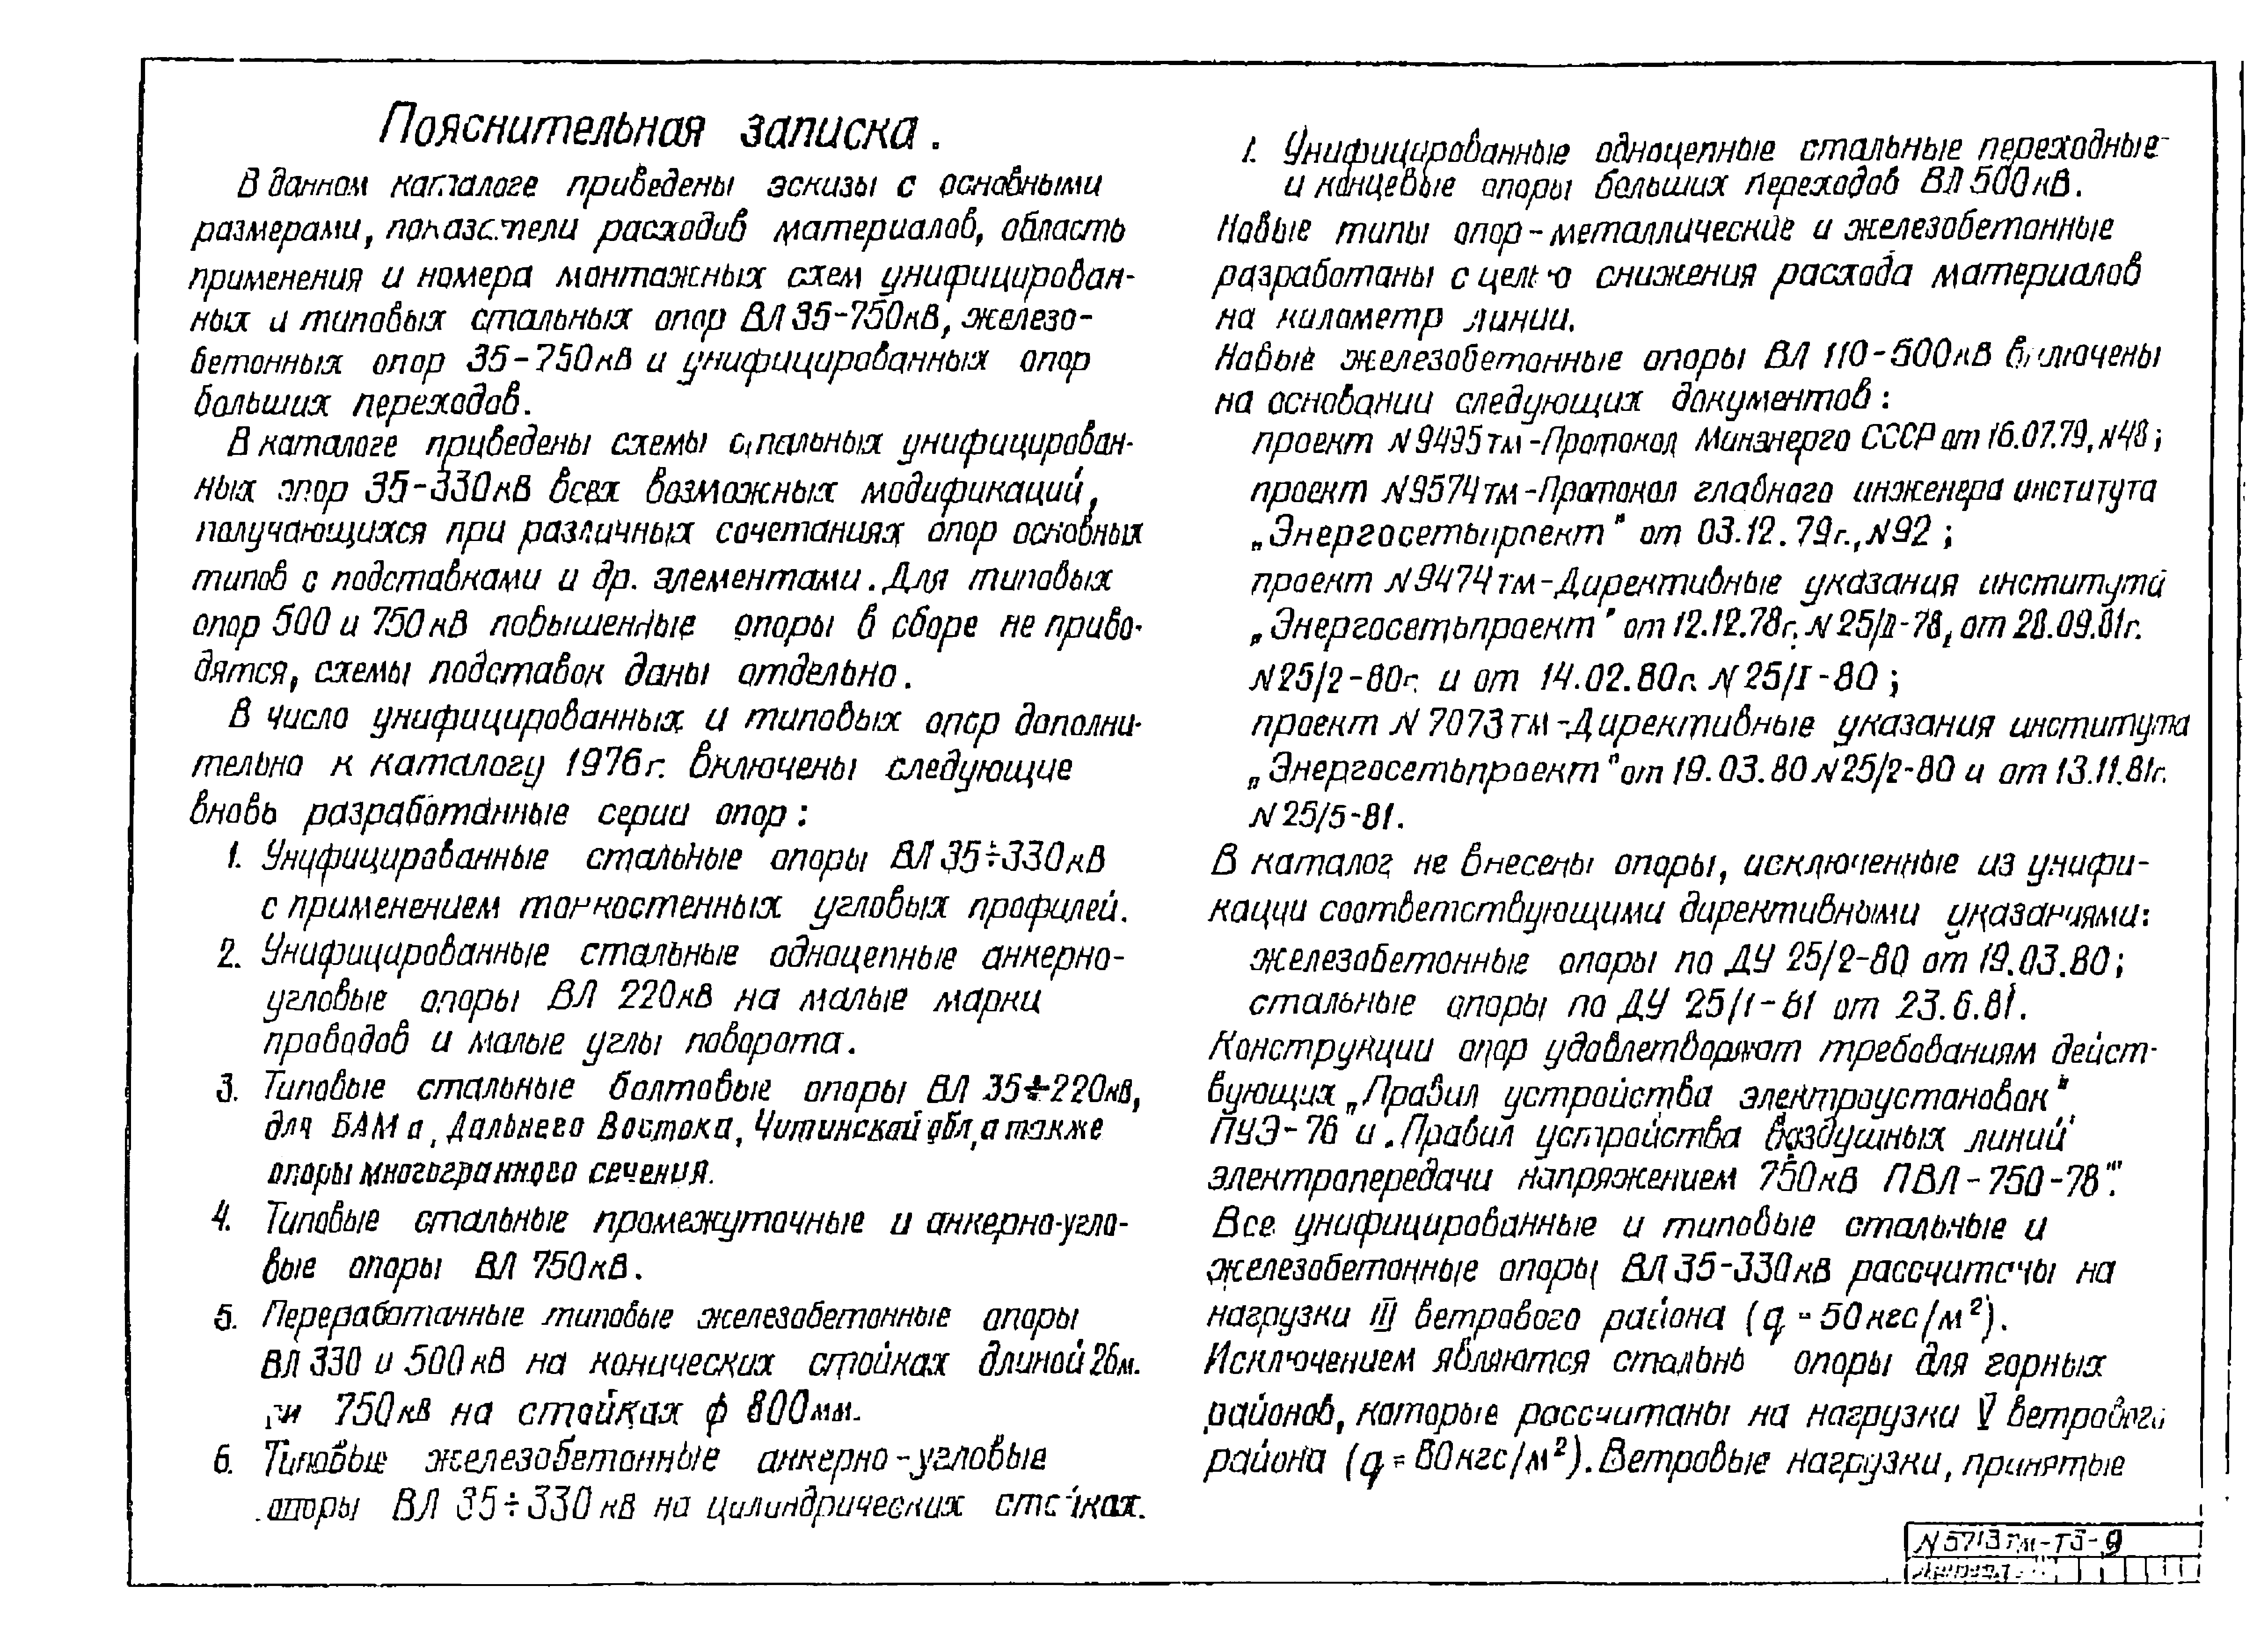 Пояснительная записка.
В данном каталоге приведены эскизы с основными
размерами, показатели расходов материалов, область
применения и номера монтажных схем унифицирован-
ных и типовых стальных опор ВЛ 35-750кВ, железо-
бетонных опор 35-750кВ и унифицированных опор
больших переходов.
В каталоге приведены схемы стальных унифицирован-
ных опор 35-330кВ всех возможных модификаций,
получающихся при различных сочетаниях опор основных
типов с подставками и др. элементами. Для типовых
опор 500 и 750кВ повышенные опоры в сборе не приво-
дятся, схемы подставок даны отдельно.
В число унифицированных и типовых опор дополни-
тельно к каталогу 1976г. включены следующие
вновь разработанные серии опор:
1. Унифицированные стальные опоры ВЛ 35÷330кВ
с применением тонкостенных угловых профилей.
2. Унифицированные стальные одноцепные анкерно-
угловые опоры ВЛ 220кВ на малые марки
проводов и малые углы поворота.
3. Типовые стальные болтовые опоры ВЛ 35÷220кВ,
для БАМа, Дальнего Востока, Читинской обл, а также
опоры многогранного сечения.
4. Типовые стальные промежуточные и анкерно-угло-
вые опоры ВЛ 750кВ.
5. Переработанные типовые железобетонные опоры
ВЛ 330 и 500кВ на конических стойках длиной 26м.
и 750кВ на стойках ф 800мм.
6. Типовые железобетонные анкерно-угловые
опоры ВЛ 35÷330кВ на цилиндрических стойках.
1. Унифицированные одноцепные стальные переходные
и концевые опоры больших переходов ВЛ 500кВ.
Новые типы опор-металлические и железобетонные
разработаны с целью снижения расхода материалов
на километр линии.
Новые железобетонные опоры ВЛ 110-500кВ включены
на основании следующих документов:
проект N9495тм-Протокол Минэнерго СССР от 16.07.79, N48;
проект N9574тм-Протокол главного инженера института
„Энергосетьпроект" от 03.12.79г., N92;
проект N9474тм-Директивные указания института
„Энергосетьпроект" от 12.12.78г. N25/II-78, от 28.09.81г.
N25/2-80г. и от 14.02.80г. N25/I-80;
проект N 7073тм-Директивные указания института
„Энергосетьпроект" от 19.03.80 N25/2-80 и от 13.11.81г.
N25/5-81.
В каталог не внесены опоры, исключенные из унифи-
кации соответствующими директивными указаниями:
железобетонные опоры по ДУ 25/2-80 от 19.03.80;
стальные опоры по ДУ 25/I-81 от 23.6.81.
Конструкции опор удовлетворяют требованиям дейст-
вующих „Правил устройства электроустановок"
ПУЭ-76 и „Правил устройства воздушных линий
электропередачи напряжением 750кВ ПВЛ-750-78".
Все унифицированные и типовые стальные и
железобетонные опоры ВЛ 35-330кВ рассчитаны на
нагрузки III ветрового района (q = 50кгс/м²).
Исключением являются стальные опоры для горных
районов, которые рассчитаны на нагрузки V ветрового
района (q = 80кгс/м²). Ветровые нагрузки, принятые
N5713тм-Т3-9